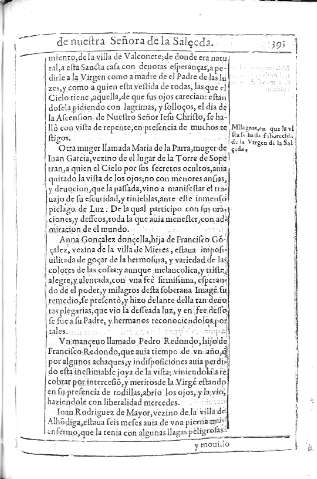 de nuestra Señora de la Salçeda.
391
miento, de la villa de Valconete; de donde era natu
ral, a esta Sancta casa con deuotas esperanças, a pe-
dirle a la Virgen como a madre de el Padre de las lu
zes, y como a quien esta vestida de todas, las que el
Cielo tiene, aquella, de que sus ojos carecian: estan
dosela pidiendo con lagrimas, y solloços, el dia de
la Ascension de Nuestro Señor Iesu Christo, se ha-
lló con vista de repente, en presencia de muchos te
stigos.
Milagros, en que la vi
de la Virgen de la Sal
çeda.
Otra muger llamada Maria de la Parra, muger de
Ioan Garcia, vezino de el lugar de la Torre de Sope
tran, a quien el Cielo por sus secretos ocultos, auia
quitado la vista de los ojos, no con menores ansias,
y deuocion, que la passada, vino a manifestar el tra-
uajo de su escuridad, y tinieblas, ante este inmenso
pielago de Luz. De la qual participo con sus ora-
ciones, y desseos, toda la que auia menester, con ad
miracion de el mundo.
Anna Gonçalez donçella, hija de Francisco Gõ-
çalez, vezina de la villa de Mieres, estaua impos-
uilitada de goçar de la hermosura, y variedad de las
colores de las cosas: y aunque melancolica, y triste,
alegre, y alentada, con vna feè firmissima, esperan-
do de el poder, y milagros desta soberana Imagẽ su
remedio, se presentò, y hizo delante della tan deuo
tas plegarias, que vio la desseada luz, y en fee desso
se fue a su Padre, y hermanos reconociendolos por
tales.
Vn mançeuo llamado Pedro Redondo, hijo de
Francisco Redondo, que auia tiempo de vn año, q̃
por algunos achaques, y indisposiciones auia perdi-
do esta inestimable joya de la vista; viniendola a re
cobrar por intercessiõ, y meritos de la Virgẽ estando
en su presencia de rodillas, abrio los ojos, y la vio,
haziendole con liberalidad mercedes.
Ioan Rodriguez de Mayor, vezino de la villa de
Alhõdiga, estaua seis meses auia de vna pierna muy
enfermo, que la tenia con algunas llagas peligrosas:
y mouido